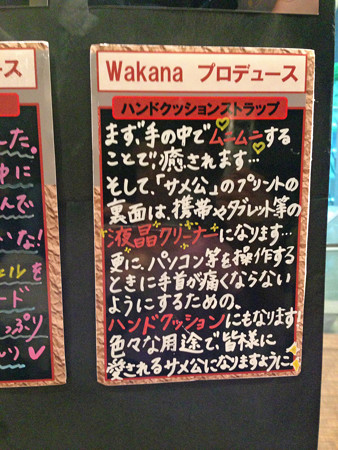 ース
した。
中に
んで
いな!
ールを
ード
っぷり
い)♡
Wakana プロデュース
ハンドクッションストラップ
まず、手の中でムニムニする
ことで、癒されます…
そして、「サメ公」のプリントの
裏面は、携帯やタブレット等の
液晶クリーナーになります…
更に、パソコン等を操作する
ときに手首が痛くならない
ようにするための、
ハンドクッションにもなります!
色々な用途で皆様に
愛されるサメ公になりますように